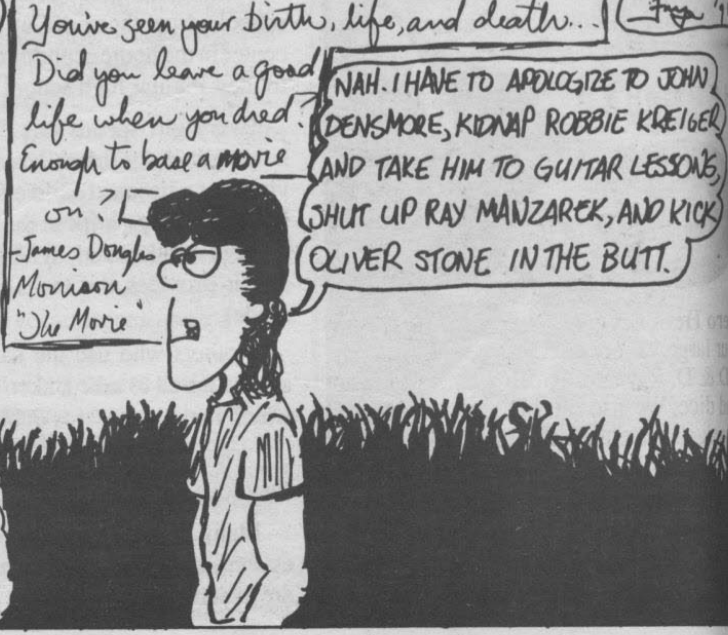 You've seen your birth, life, and death...
Did you leave a good
life when you died?
Enough to base a movie
on?
-James Douglas
Morrison
"The Movie"
NAH. I HAVE TO APOLOGIZE TO JOHN
DENSMORE, KIDNAP ROBBIE KREIGER
AND TAKE HIM TO GUITAR LESSONS,
SHUT UP RAY MANZAREK, AND KICK
OLIVER STONE IN THE BUTT.